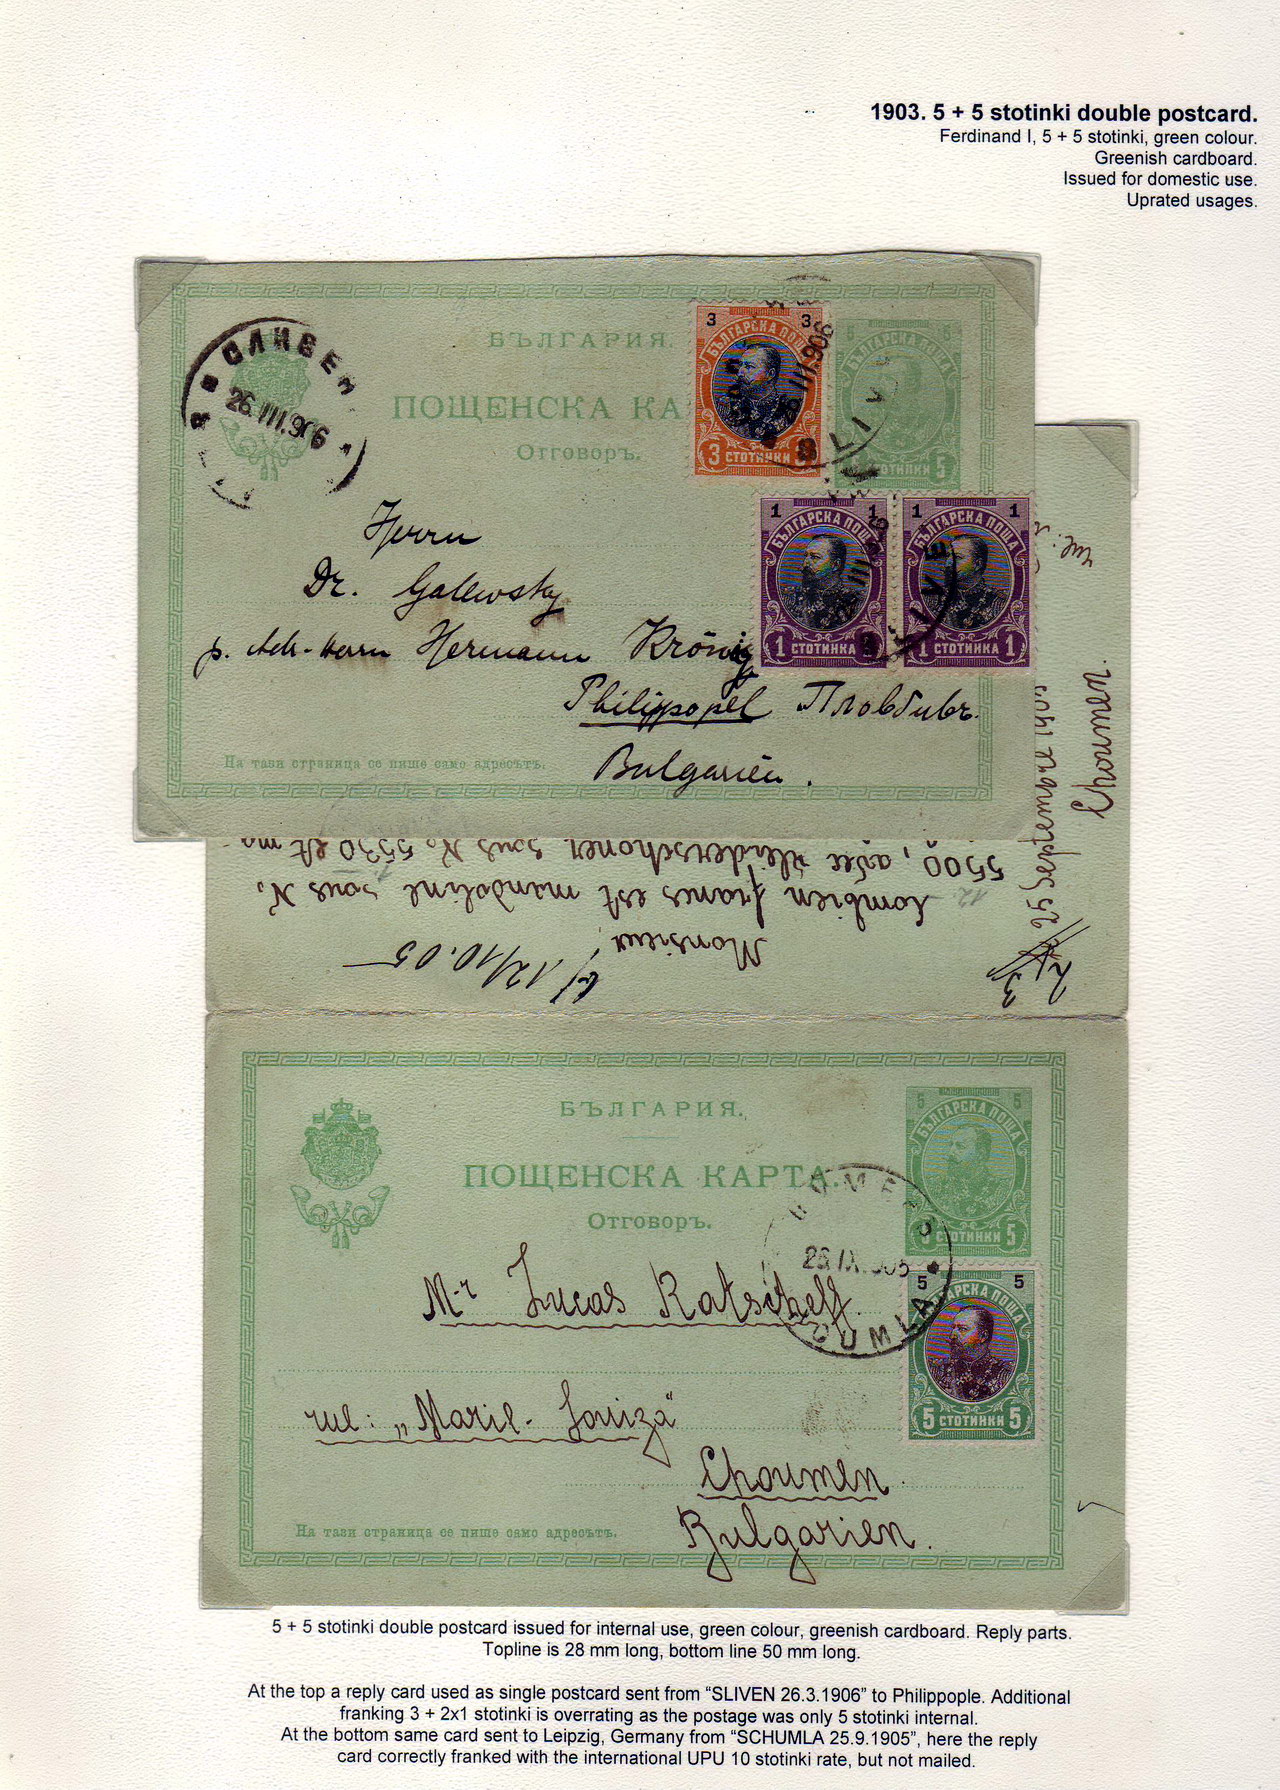 1903. 5 + 5 stotinki double postcard.
Ferdinand I, 5 + 5 stotinki, green colour.
Greenish cardboard.
Issued for domestic use.
Uprated usages.
БЪЛГАРИЯ.
ПОЩЕНСКА КА
Отговоръ.
СЛИВЕН
26.III.906
3 3
БЪЛГАРСКА ПОЩА
3 СТОТИНКИ
26 III.906
SLIV
5
БЪЛГАРСКА ПОЩА
СТОТИНКИ 5
1 1
БЪЛГАРСКА ПОЩА
1 СТОТИНКА
1 1
БЪЛГАРСКА ПОЩА
1 СТОТИНКА 1
Herrn
Dr. Galewsky
p. Adr. Herrn Hermann König
Philippopel Пловдивъ
Bulgarien.
На тази страница се пише само адресътъ.
Choumen.
25 Septembre 1905
5500, avec sous No 5530 et
Combien francs est mandoline sous N.
Monsieur,
12/10.05
БЪЛГАРИЯ.
ПОЩЕНСКА КАРТА.
Отговоръ.
5 5
БЪЛГАРСКА ПОЩА
5 СТОТИНКИ 5
5 5
БЪЛГАРСКА ПОЩА
5 СТОТИНКИ 5
Mr Lucas Ratscheff.
rue: „Marie-Louiza"
Choumen
Bulgarien.
На тази страница се пише само адресътъ.
5 + 5 stotinki double postcard issued for internal use, green colour, greenish cardboard. Reply parts.
Topline is 28 mm long, bottom line 50 mm long.
At the top a reply card used as single postcard sent from “SLIVEN 26.3.1906” to Philippople. Additional
franking 3 + 2x1 stotinki is overrating as the postage was only 5 stotinki internal.
At the bottom same card sent to Leipzig, Germany from “SCHUMLA 25.9.1905”, here the reply
card correctly franked with the international UPU 10 stotinki rate, but not mailed.